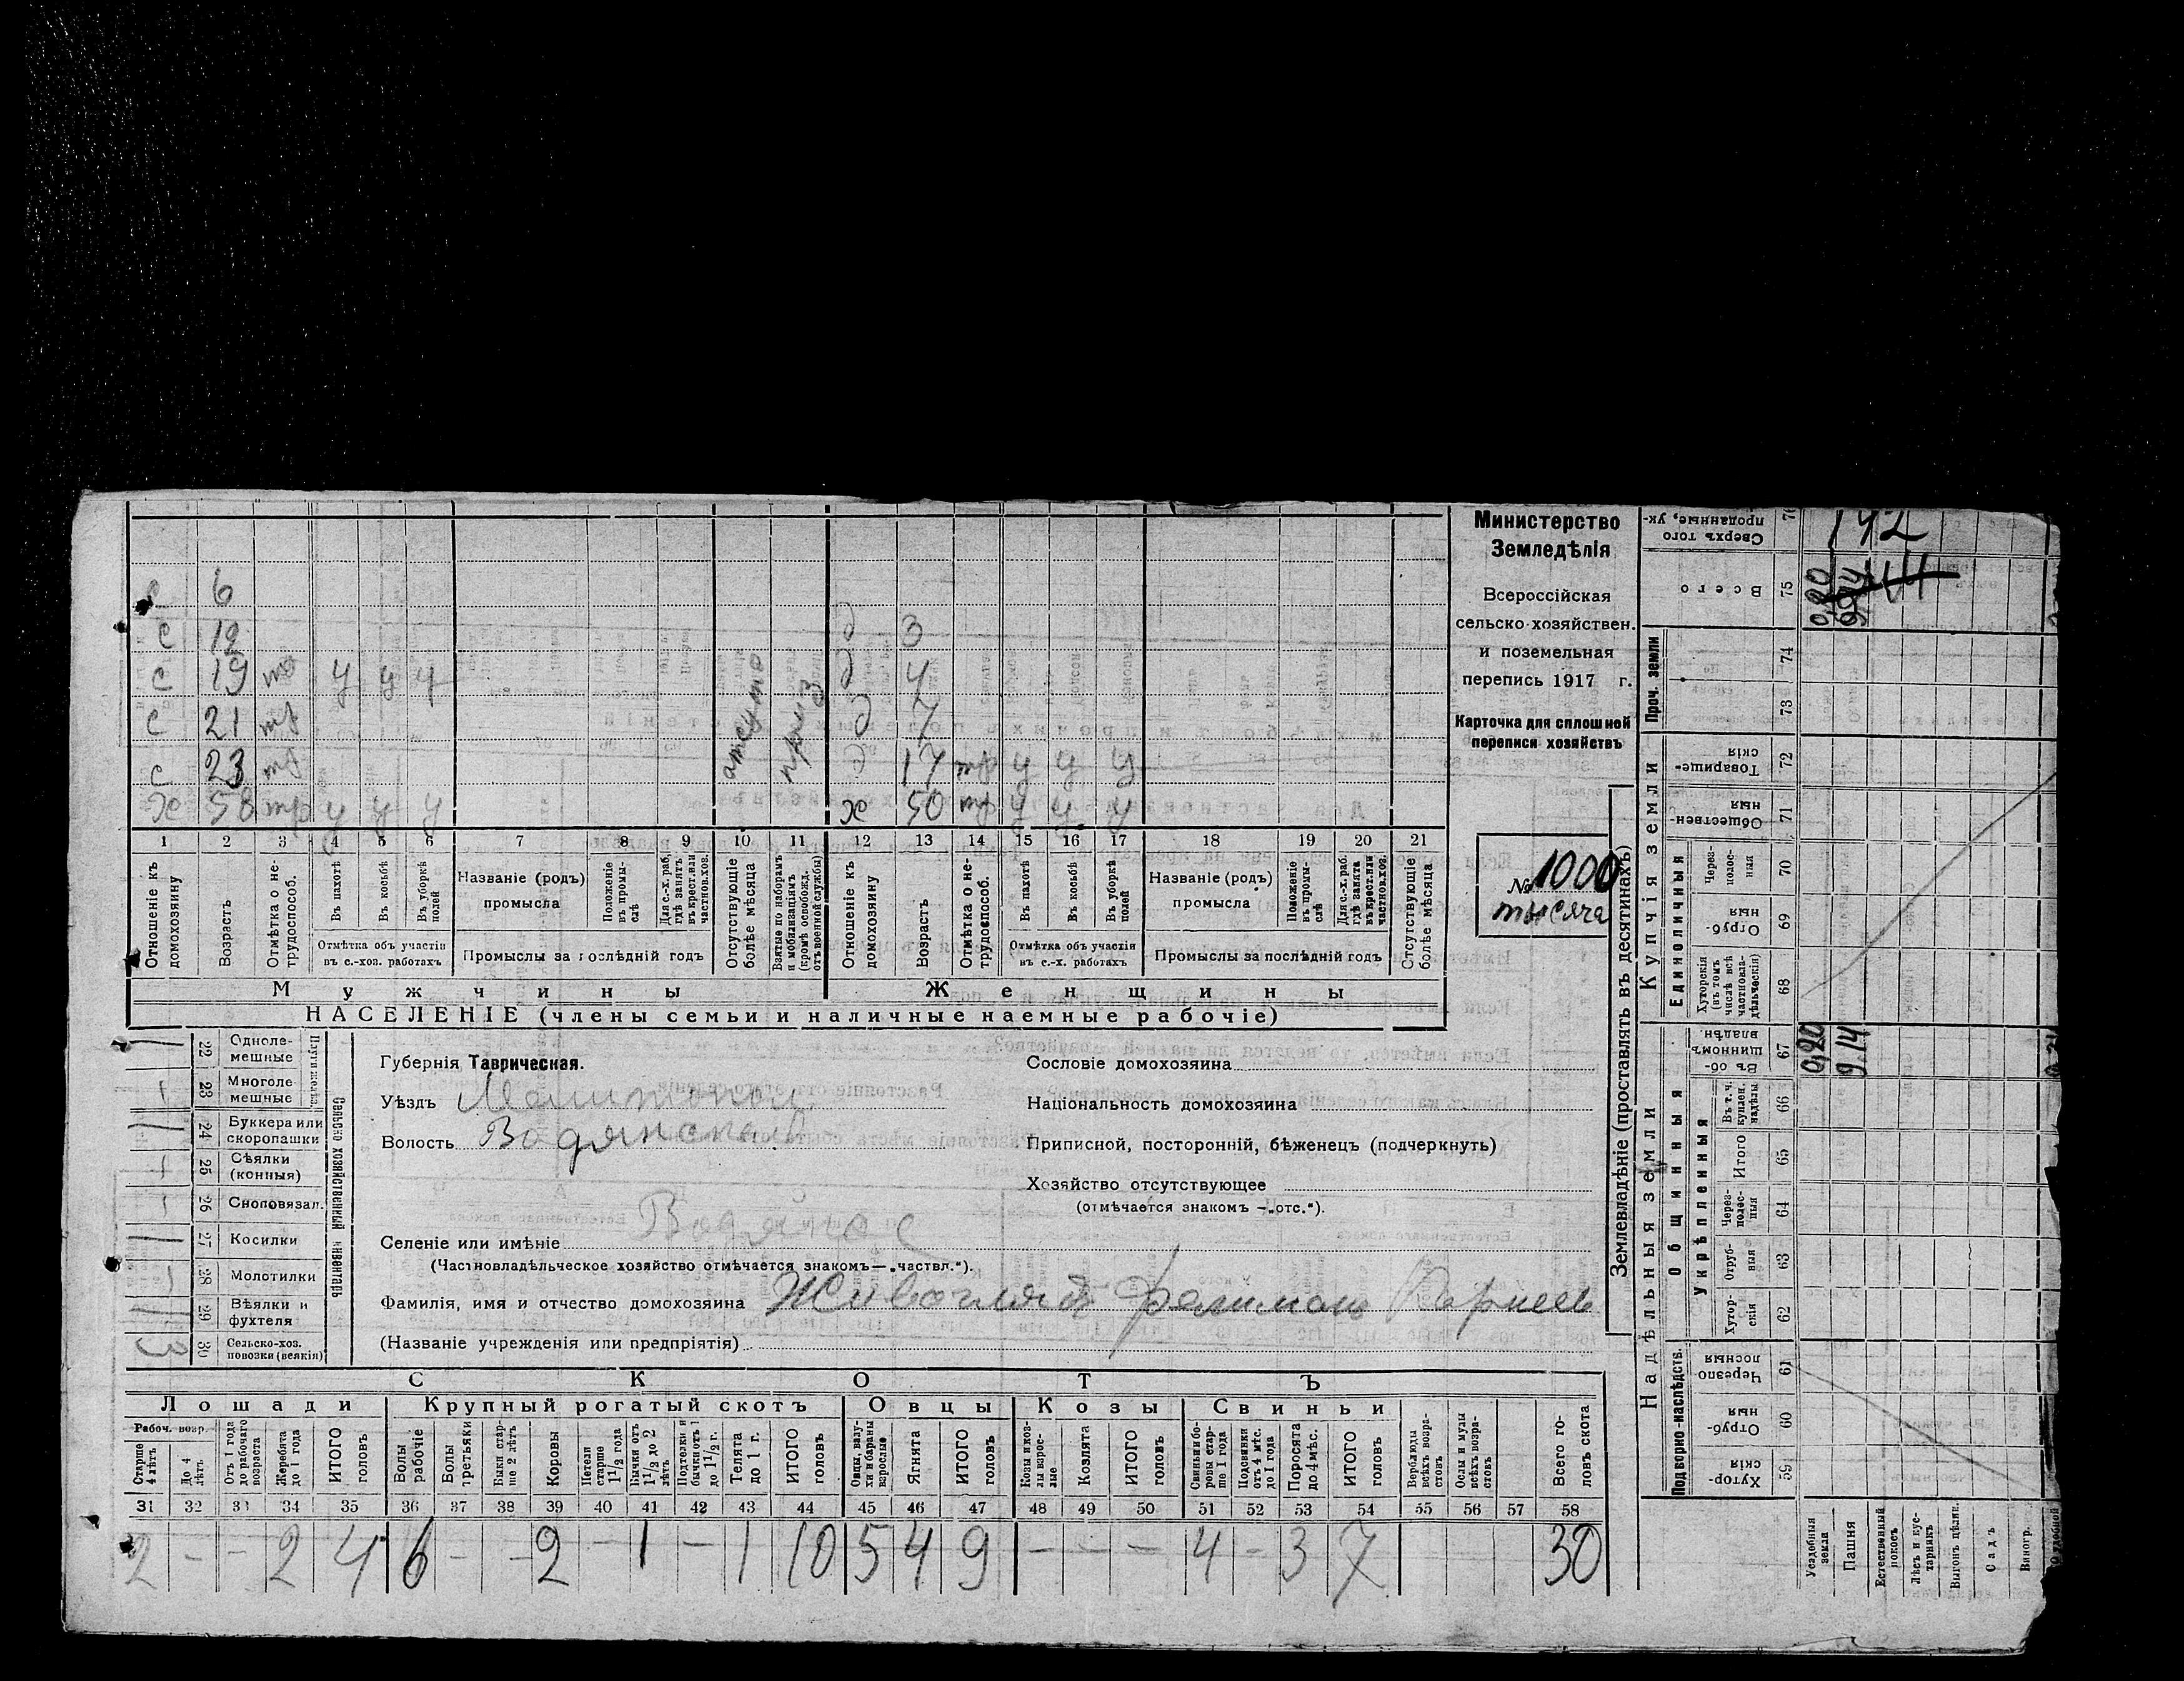 Министерство
Земледѣлія
Всероссійская
сельско-хозяйствен.
и поземельная
перепись 1917 г.
Карточка для сплошной
переписи хозяйствъ
№ 1000
тысяча
6
с 12
с 19 тр у у у
с 21 тр
с 23 тр
х 58 тр у у у
отсут
приз
д 3
д 4
д 7
д 17 тр у у у
х 50 тр у у у
1 2 3 4 5 6 7 8 9 10 11 12 13 14 15 16 17 18 19 20 21
Отношеніе къ домохозяину
Возрастъ
Отмѣтка о нетрудоспособ.
Въ пахотѣ
Въ косьбѣ
Въ уборкѣ полей
Отмѣтка объ участіи
въ с.-хоз. работахъ
Названіе (родъ)
промысла
Положеніе въ промыслѣ
Для с.-х. раб. гдѣ занятъ въ крест. или частнов. хоз.
Промыслы за послѣдній годъ
Отсутствующіе болѣе мѣсяца
Взятые по наборамъ и мобилизаціямъ (кромѣ освобожд. отъ военной службы)
Отношеніе къ домохозяину
Возрастъ
Отмѣтка о нетрудоспособ.
Въ пахотѣ
Въ косьбѣ
Въ уборкѣ полей
Отмѣтка объ участіи
въ с.-х. работахъ
Названіе (родъ)
промысла
Положеніе въ промыслѣ
Для с.-х. раб. гдѣ занята въ крест. или частнов. хоз.
Промыслы за послѣдній годъ
Отсутствующіе болѣе мѣсяца
Мужчины
Женщины
НАСЕЛЕНІЕ (члены семьи и наличные наемные рабочіе)
Сельско хозяйственный инвентарь
22 Однолемешные
23 Многолемешные
24 Буккера или скоропашки
25 Сѣялки (конныя)
26 Сноповязал.
27 Косилки
28 Молотилки
29 Вѣялки и фухтеля
30 Сельско-хоз. повозки (всякія)
3
Губернія Таврическая.
Уѣздъ
Волость Водянская
Сословіе домохозяина
Національность домохозяина
Приписной, посторонній, бѣженецъ (подчеркнуть)
Хозяйство отсутствующее
(отмѣчается знакомъ —„отс.“).
Селеніе или имѣніе Водяное
(Частновладѣльческое хозяйство отмѣчается знакомъ—„частвл.“).
Фамилія, имя и отчество домохозяина Живогляд Филимон Корнеев
(Названіе учрежденія или предпріятія)
СКОТЪ
Лошади Крупный рогатый скотъ Овцы Козы Свиньи
Рабоч. возр.
Старше 4 лѣтъ
До 4 лѣтъ
Отъ 1 года до рабочаго возраста
Жеребята до 1 года
ИТОГО головъ
Волы рабочіе
Волы третьяки
Быки старше 2 лѣтъ
Коровы
Нетели старше 1½ года
Бычки отъ 1½ до 2 лѣтъ
Подтелки и бычки отъ 1 до 1½ г.
Телята до 1 г.
ИТОГО головъ
Овцы, валухи и бараны взрослые
Ягнята
ИТОГО головъ
Козы и козлы взрослые
Козлята
ИТОГО головъ
Свиньи и боровы старше 1 года
Подсвинки отъ 4 мѣс. до 1 года
Поросята до 4 мѣс.
ИТОГО головъ
Верблюды всѣхъ возрастовъ
Ослы и мулы всѣхъ возрастовъ
Всего головъ скота
31 32 33 34 35 36 37 38 39 40 41 42 43 44 45 46 47 48 49 50 51 52 53 54 55 56 57 58
2 - - 2 4 6 - - 2 - 1 - 1 10 5 4 9 - - - 4 - 3 7 30
Землевладѣніе (проставлять въ десятинахъ)
Надѣльныя земли
Купчія земли
Проч. земли
Подворно-наслѣдств.
Общинныя
Укрѣпленныя
Единоличныя
Хуторскія 59
Отрубныя 60
Черезполосныя 61
Хуторскія 62
Отрубныя 63
Черезполосныя 64
Итого 65
Въ т. ч. куплен. надѣлы 66
Въ общинномъ владѣн. 67
0,20
9.14
Хуторскія (въ томъ числѣ всѣ частновладѣльческія) 68
Отрубныя 69
Черезполосныя 70
Общественныя 71
Товарищескія 72
73
74
Всего 75
0,20
Сверхъ того проданные, ук-
142
Усадебныя земля
Пашня
Естественный покосъ
Лѣсъ и кустарникъ
Выгонъ дѣлин.
Садъ
Виногр.